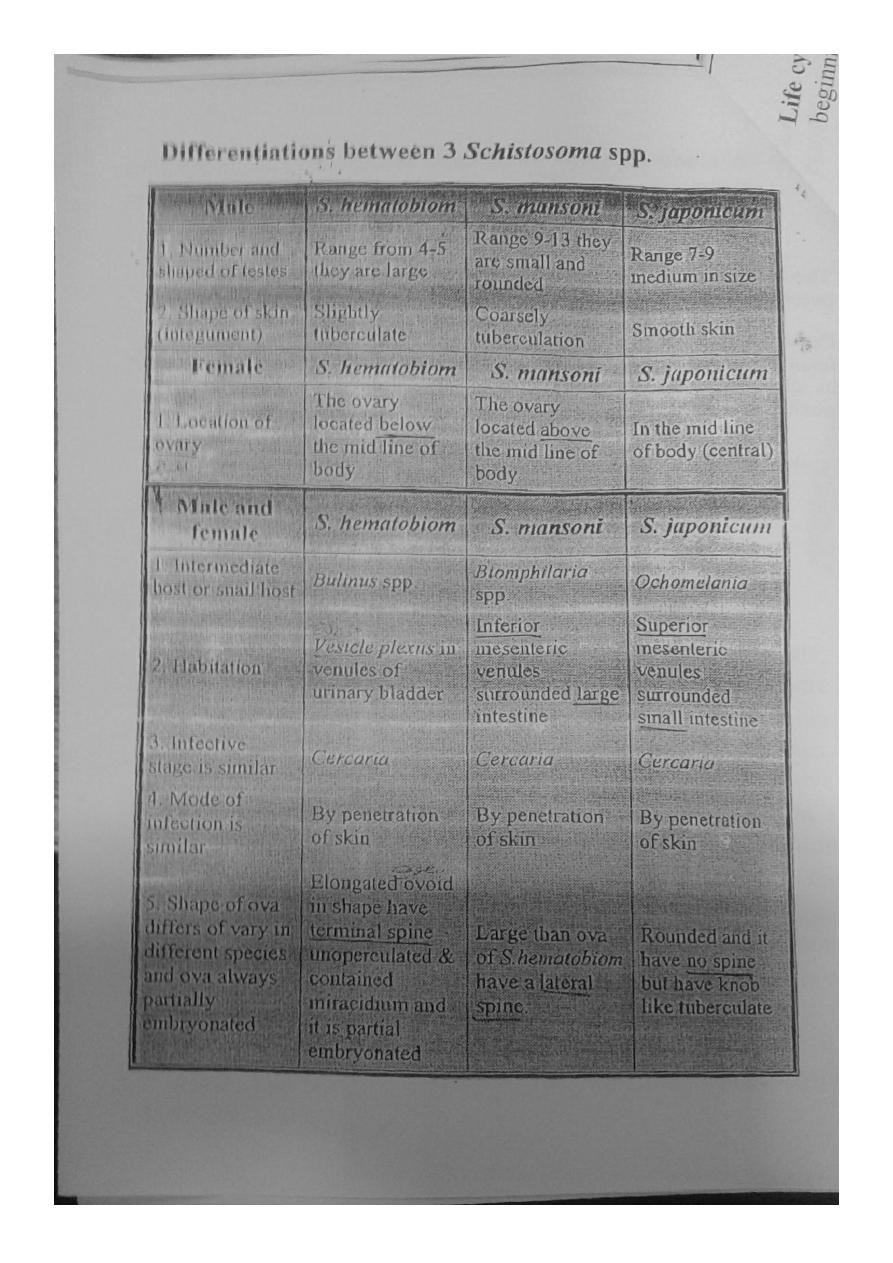 Life cy
beginn
Differentiations between 3 Schistosoma spp.
Male S. hematobiom S. mansoni S. japonicum
1. Number and shaped of testes
Range from 4-5 they are large
Range 9-13 they are small and rounded
Range 7-9 medium in size
2. Shape of skin (integument)
Slightly tuberculate
Coarsely tuberculation
Smooth skin
Female S. hematobiom S. mansoni S. japonicum
1. Location of ovary
The ovary located below the mid line of body
The ovary located above the mid line of body
In the mid line of body (central)
Male and female S. hematobiom S. mansoni S. japonicum
1. Intermediate host or snail host
Bulinus spp.
Biomphilaria spp.
Ochomelania
2. Habitation
Vesicle plexus in venules of urinary bladder
Inferior mesenteric venules surrounded large intestine
Superior mesenteric venules surrounded small intestine
3. Infective stage is similar
Cercaria
Cercaria
Cercaria
4. Mode of infection is similar
By penetration of skin
By penetration of skin
By penetration of skin
5. Shape of ova differs of vary in different species and ova always partially embryonated
Elongated ovoid in shape have terminal spine unoperculated & contained miracidium and it is partial embryonated
Large than ova of S.hematobiom have a lateral spine.
Rounded and it have no spine but have knob like tuberculate